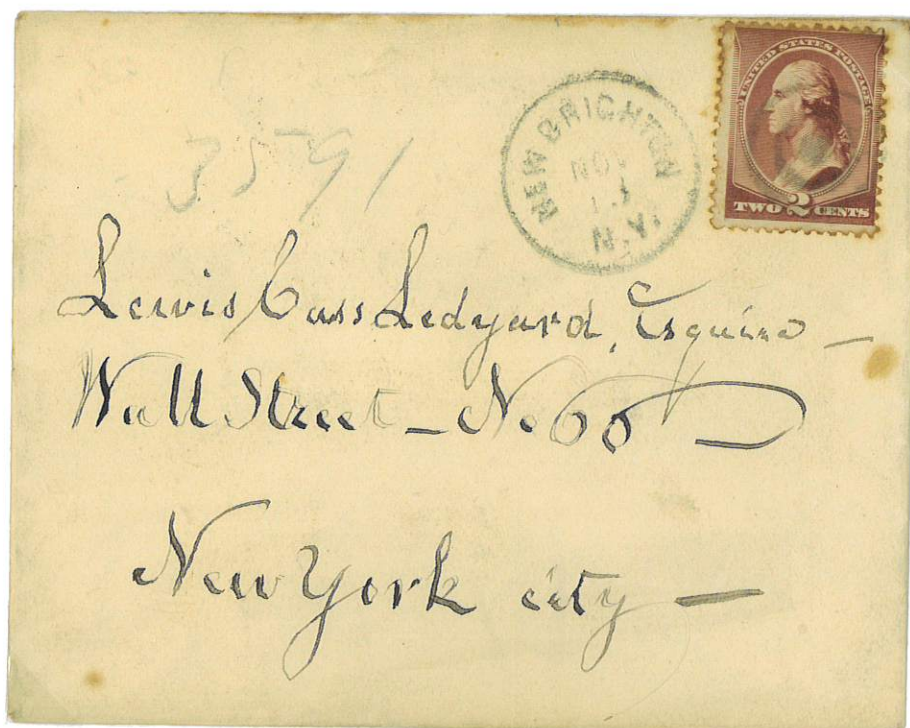 UNITED STATES POSTAGE
TWO 2 CENTS
NEW BRIGHTON
NOV
13
N.Y.
3591
Lewis Cass Ledyard, Esquire —
Wall Street — No 60
New York city —